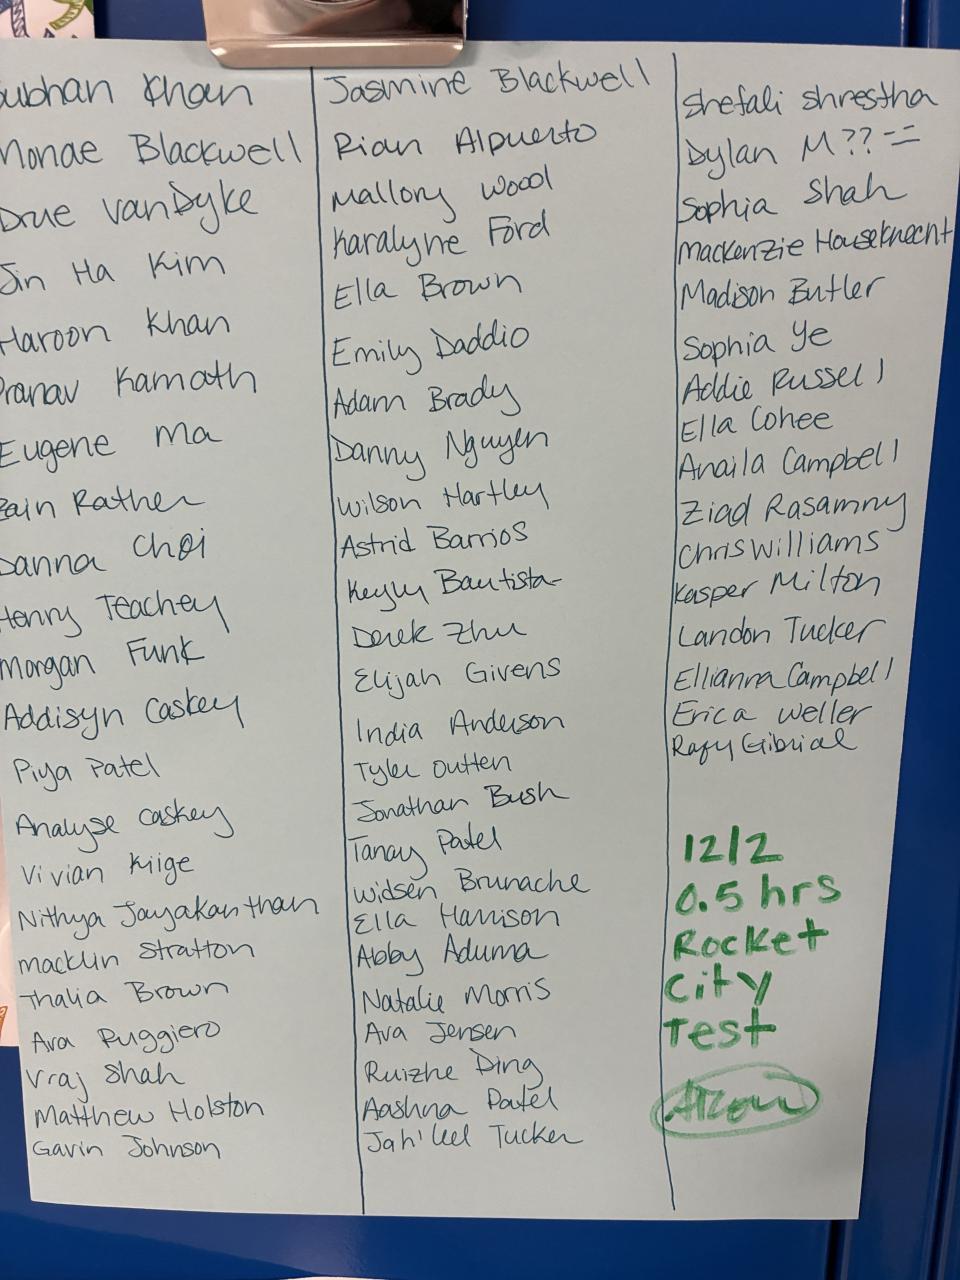 ubhan Khan
Monae Blackwell
Drue VanDyke
Jin Ha Kim
Haroon Khan
Pranav Kamath
Eugene Ma
Zain Rather
Danna Choi
Henry Teachey
Morgan Funk
Addisyn Caskey
Piya Patel
Analyse Caskey
Vivian Kiige
Nithya Jayakanthan
Macklin Stratton
Thalia Brown
Ava Ruggiero
Vraj Shah
Matthew Holston
Gavin Johnson
Jasmine Blackwell
Rian Alpuerto
Mallory Wood
Karalyne Ford
Ella Brown
Emily Daddio
Adam Brady
Danny Nguyen
Wilson Hartley
Astrid Barrios
Keyly Bautista
Derek Zhu
Elijah Givens
India Anderson
Tyler Outten
Jonathan Bush
Tanay Patel
Widsen Brunache
Ella Harrison
Abby Aduma
Natalie Morris
Ava Jensen
Ruizhe Ding
Aashna Patel
Tucker
Shefali Shrestha
Dylan M??--
Sophia Shah
Mackenzie Houseknecht
Madison Butler
Sophia Ye
Addie Russell
Ella Cohee
Anaila Campbell
Ziad Rasamny
Chris Williams
Kasper Milton
Landon Tucker
Ellianna Campbell
Erica Weller
Rafy Gibrial
12/2
0.5 hrs
Rocket
City
Test